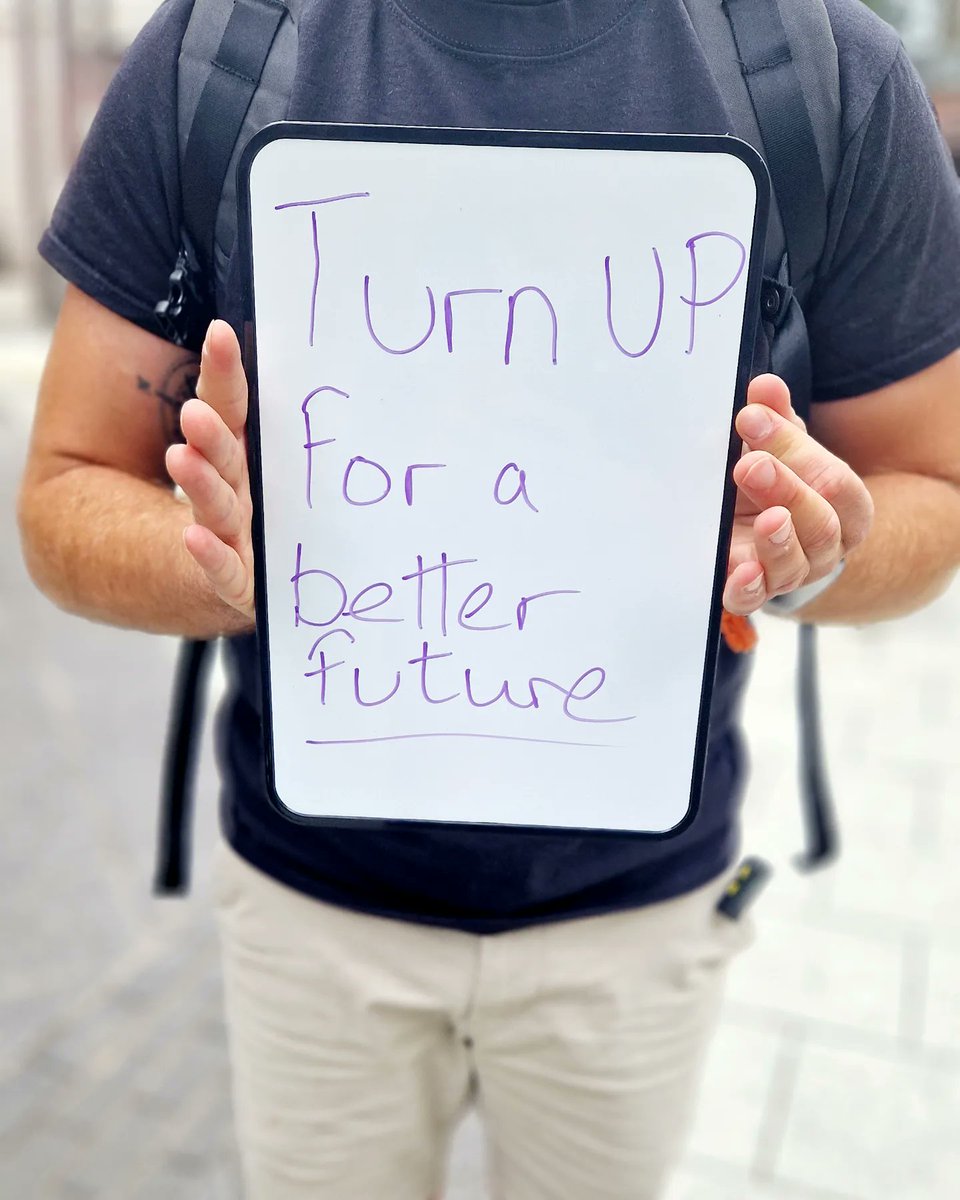 Turn UP
for a
better
future